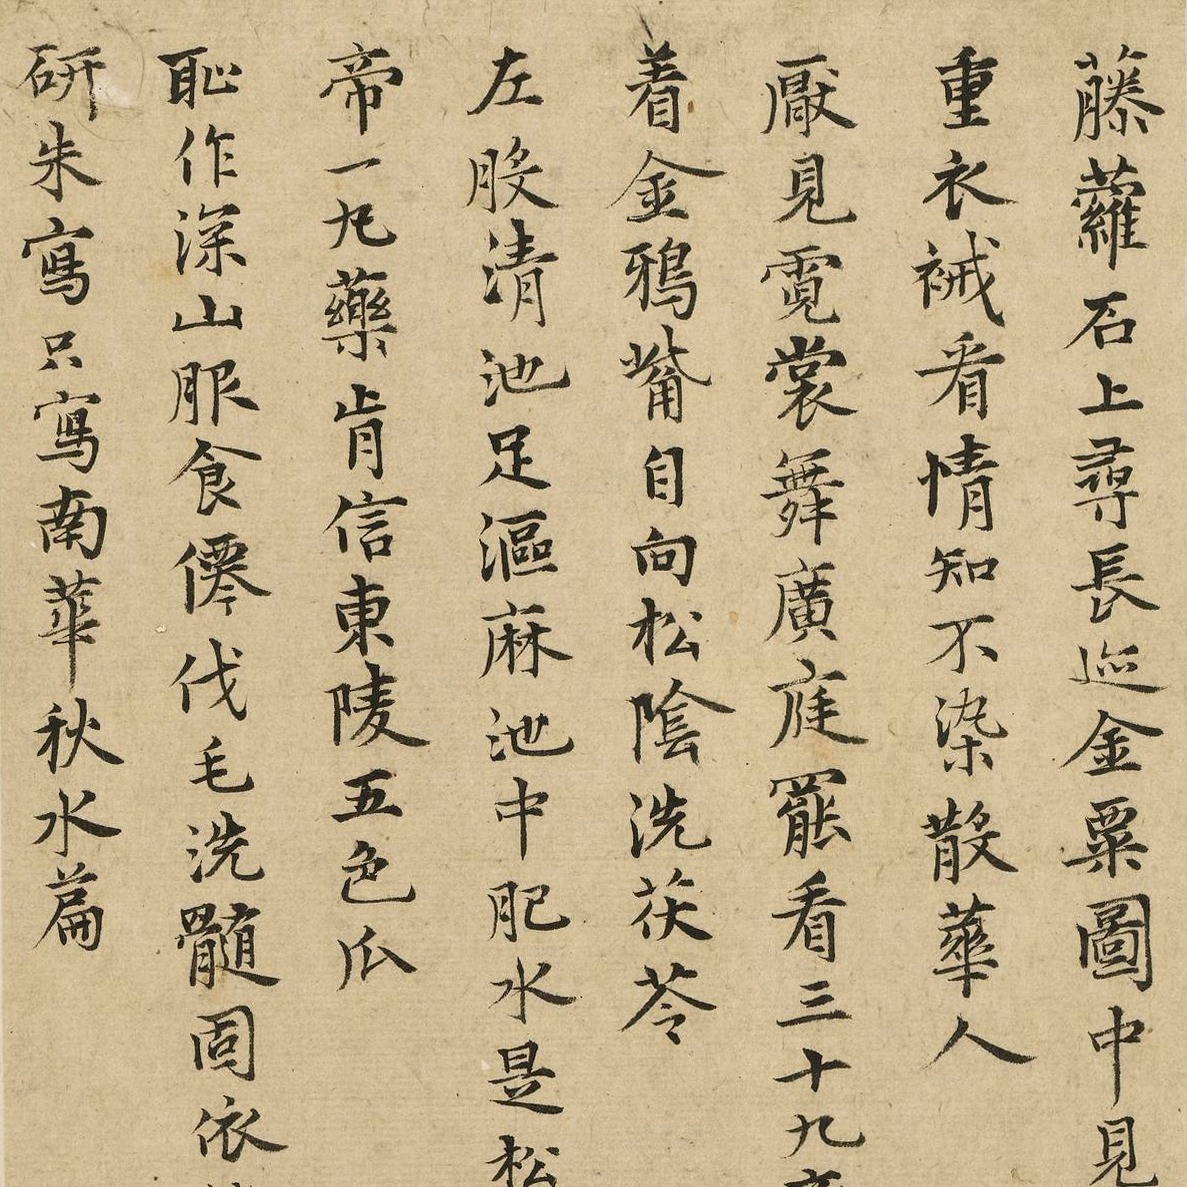 藤蘿石上尋長巡金粟圖中見
重衣裓看情知不染散華人
厭見霓裳舞廣庭罷看三十九
着金鴉觜自向松陰洗茯苓
左股清池足漚麻池中肥水是松
帝一丸藥肯信東陵五色瓜
恥作深山服食僊伐毛洗髓固依
研朱寫只寫南華秋水篇